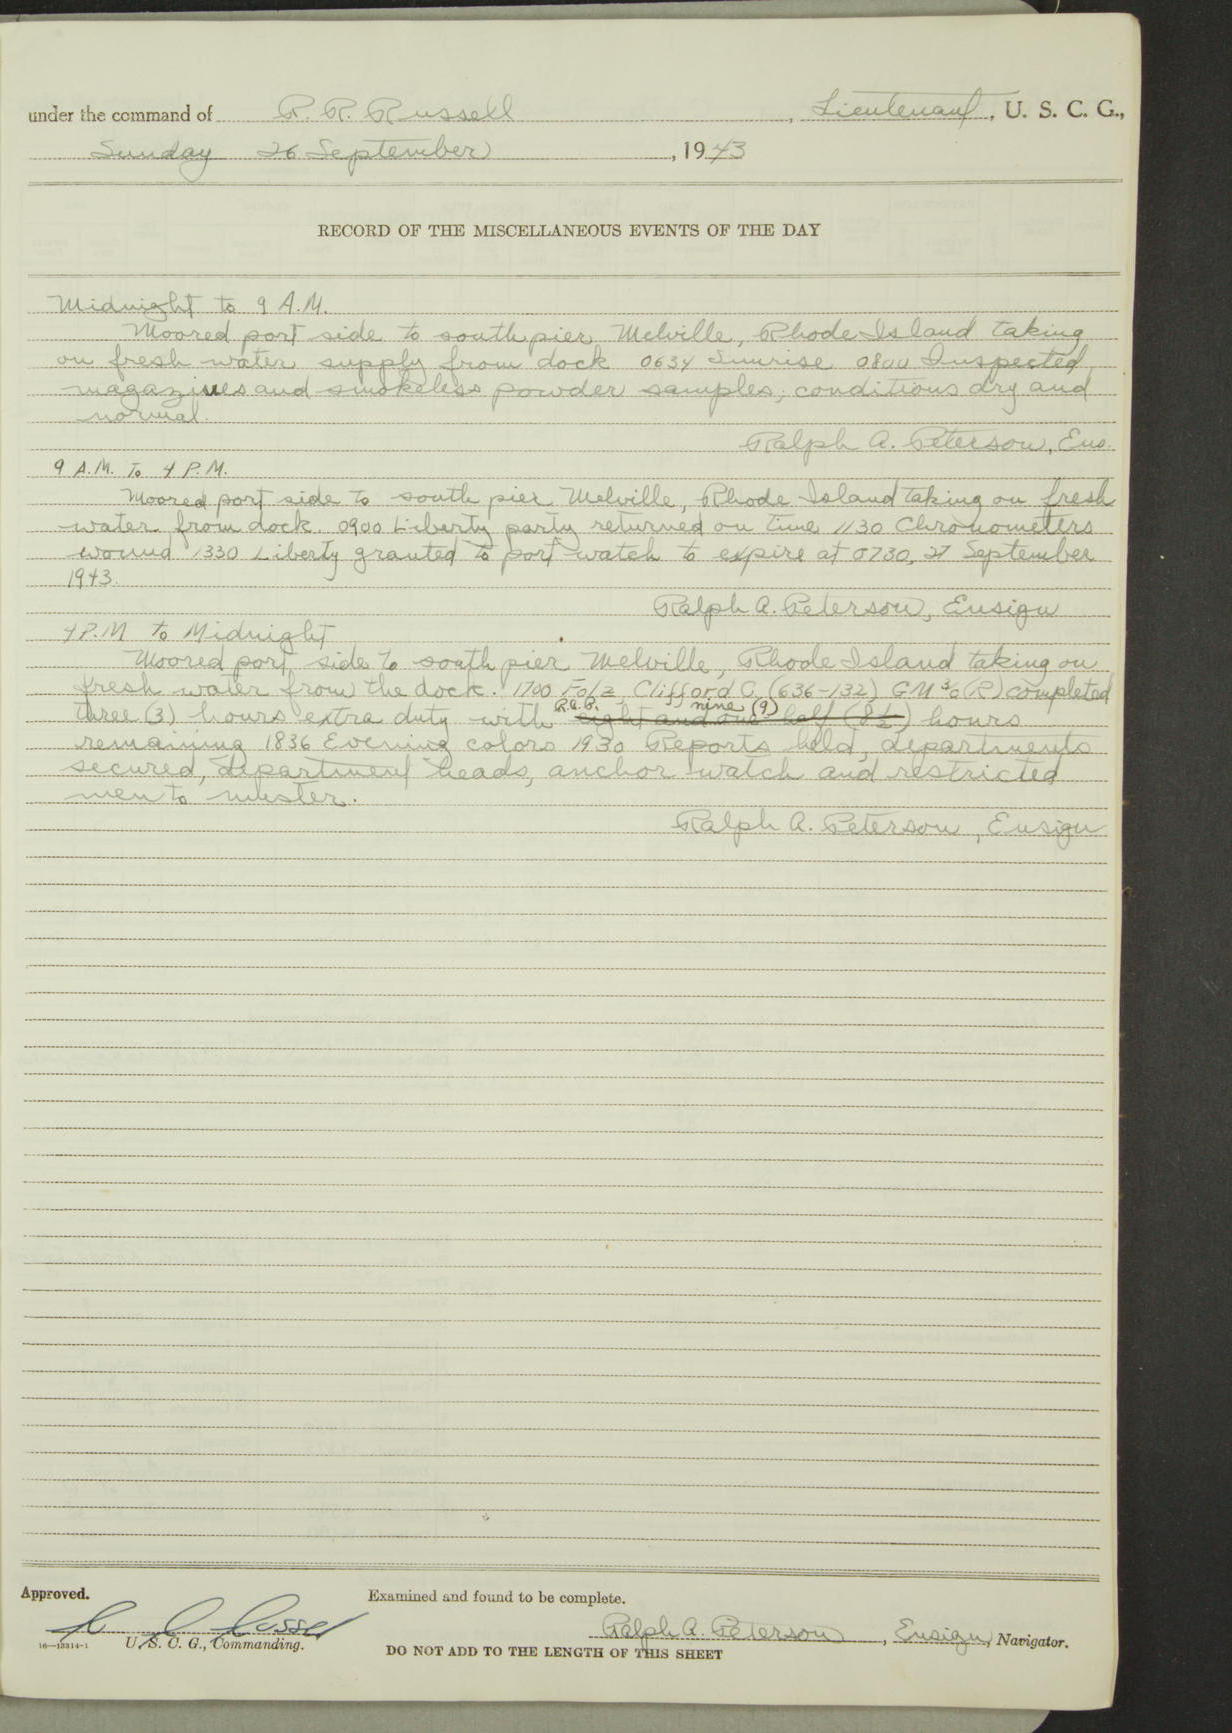 under the command of R. R. Russell, Lieutenant, U. S. C. G.,
Sunday 26 September, 1943
RECORD OF THE MISCELLANEOUS EVENTS OF THE DAY
Midnight to 9 A.M.
Moored port side to south pier Melville, Rhode Island taking
on fresh water supply from dock 0634 Sunrise 0800 Inspected
magazines and smokeless powder samples; conditions dry and
normal.
Ralph A. Peterson, Ens.
9 A.M. To 4 P.M.
Moored port side to south pier Melville, Rhode Island taking on fresh
water from dock. 0900 Liberty party returned on time 1130 Chronometers
wound 1330 Liberty granted to port watch to expire at 0730, 27 September
1943.
Ralph A. Peterson, Ensign
4 P.M to Midnight
Moored port side to south pier Melville, Rhode Island taking on
fresh water from the dock. 1700 Folz Clifford C. (636-132) GM 3/c (R) completed
R.A.P. nine (9)
three (3) hours extra duty with eight and one half (8½) hours
remaining 1836 Evening colors 1930 Reports held, departments
secured, department heads, anchor watch and restricted
men to muster.
Ralph A. Peterson, Ensign
Approved.
Examined and found to be complete.
Ralph A. Peterson, Ensign, Navigator.
16—13314-1 U. S. C. G., Commanding.
DO NOT ADD TO THE LENGTH OF THIS SHEET